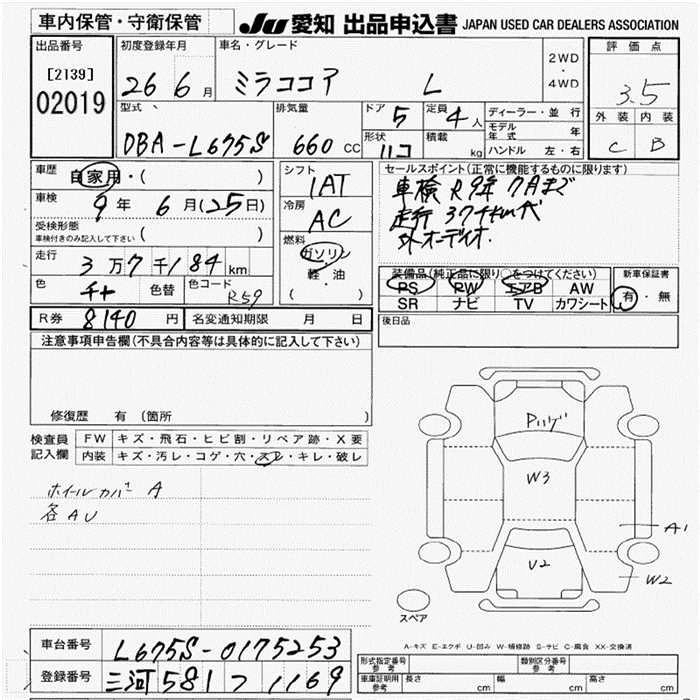 車内保管・守衛保管
JU 愛知 出品申込書 JAPAN USED CAR DEALERS ASSOCIATION
出品番号 初度登録年月 車名・グレード 評価点
[2139] 02019 26 6月 ミラココア L 2WD・4WD 3.5
型式 排気量 ドア 5 定員 4人 ディーラー・並 行 外装 内装
DBA-L675S 660 CC 形状 ハコ 積載 kg モデル年式 年 C B
ハンドル 左・右
車歴 自家用・( ) シフト 1AT セールスポイント(正常に機能するものに限ります)
車検 9年 6月(25日) 冷房 AC 車検 R9年 7月まで
受検形態 車検付きのみ記入して下さい ( ) 燃料 走行 37千km代
走行 3万7千184 km ガソリン・軽・油 ( ) 外オーディオ.
色 チャ 色替 色コード R59 装備品(純正品に限り○をつけてください) 新車保証書
PS PW エアB AW 有・無
SR ナビ TV カワシート
R券 8140円 名変通知期限 月 日 後日品
注意事項申告欄(不具合内容等は具体的に記入して下さい)
修復歴 有(箇所 )
検査員記入欄 FW キズ・飛石・ヒビ割・リペア跡・X要
内装 キズ・汚レ・コゲ・穴・スレ・キレ・破レ
ホイールカバー A
各AU
W3
A1
U2
W2
スペア
A-キズ E-エクボ U-凹み W-補修跡 S-サビ C-腐食 XX-交換済
車台番号 L675S-0175253
登録番号 三河581 フ 1169
形式指定番号 参考 類別区分番号 参考
車庫証明用 参考 長さ cm 幅 cm 高さ cm